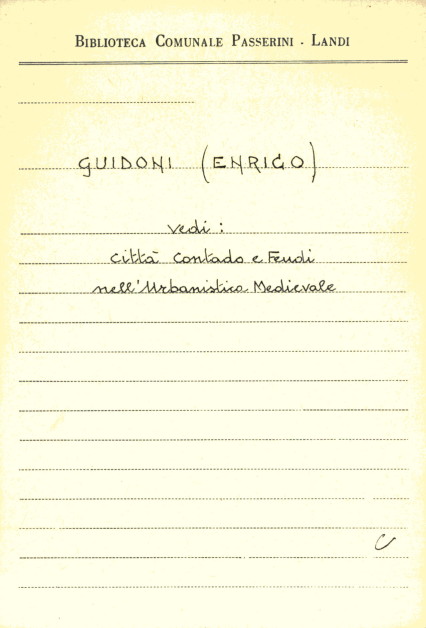 BIBLIOTECA COMUNALE PASSERINI - LANDI
GUIDONI (ENRICO)
vedi :
Città Contado e Feudi
nell'Urbanistica Medievale
C